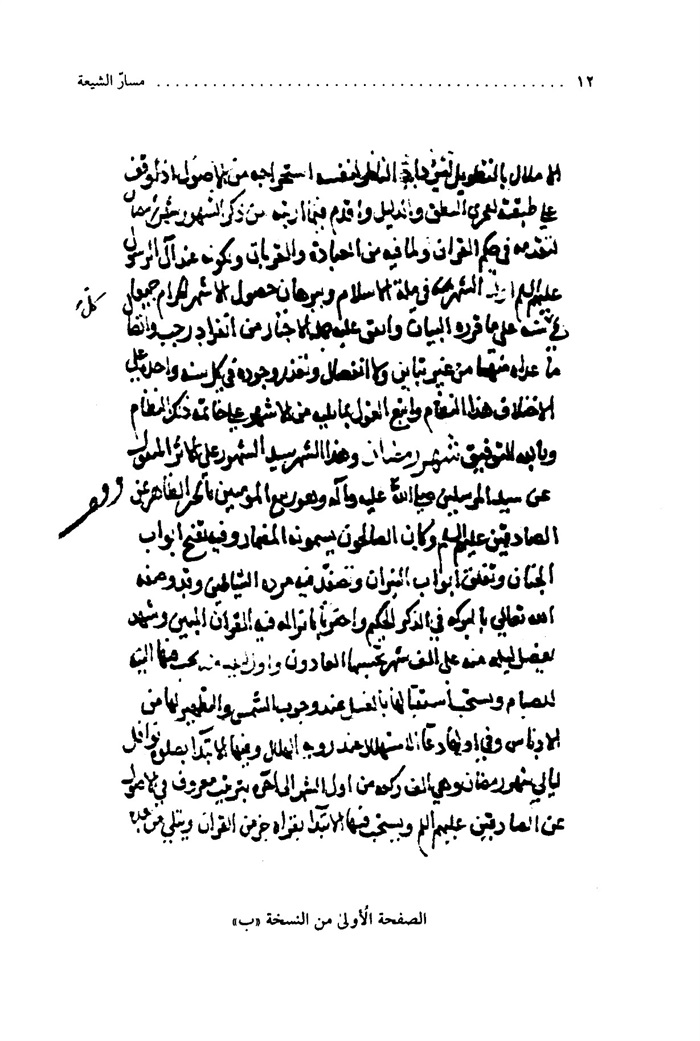 ١٢ ........................................ مسارّ الشيعة
الاملال بالتطويل الناظر لنفسه استخراجه من الاصول اذ لموقف
على طبقته المعنى والدليل واقدم فيما ارتبه من ذكر الشهور شهر رمضان
لتقدمه في حكم القران ولما فيه من العبادة والقربات وبكونه عند آل الرسول
عليهم السلم اول الشهور في ملة الاسلام وببرهان حصول الاشهر الحرم جميعا في
كل
سنة على ما قرره البيان واتفق عليه الاخبار من انفراد رجب واتصال
ما عداه منها من غير تباين ولا انفصال وتعذر وجوده في كل سنة واحدة على
الاختلاف هذا النظام واتبع القول بما يليه من الاشهر على خاتمة ذكر النظام
وبالله التوفيق شهر رمضان وهذا الشهر سيد الشهور على الاثر المنقول
عن سيد المرسلين صلى الله عليه وآله وهو ربيع المؤمنين بالخبر الظاهر عن
الصادقين عليهم السلم وكان الصالحون يسمونه المضمار وفيه تفتح ابواب
الجنان وتغلق ابواب النيران وتصفد فيه مردة الشياطين وقد وصفه
الله تعالى بالبركة في الذكر الحكيم واخبر بانزاله فيه القران المبين وشهد
بفضل ليلة منه على الف شهر يحسبها العادون واول ليلة منه يجب فيها النية
للصيام ويستحب استقبالها بالغسل عند وجوب الشمس والتطهير لها من
الادناس وفي اولها دعاء الاستهلال عند رؤية الهلال وفيها الابتدا بصلوة نوافل
ليالي شهر رمضان وهي الف ركعة من اول الشهر الى آخره بترتيب معروف في الاصول
عن الصادقين عليهم السلم ويستحب فيها الابتدا بقراة جزء من القران ويتلى من بعده
الصفحة الأولى من النسخة «ب»